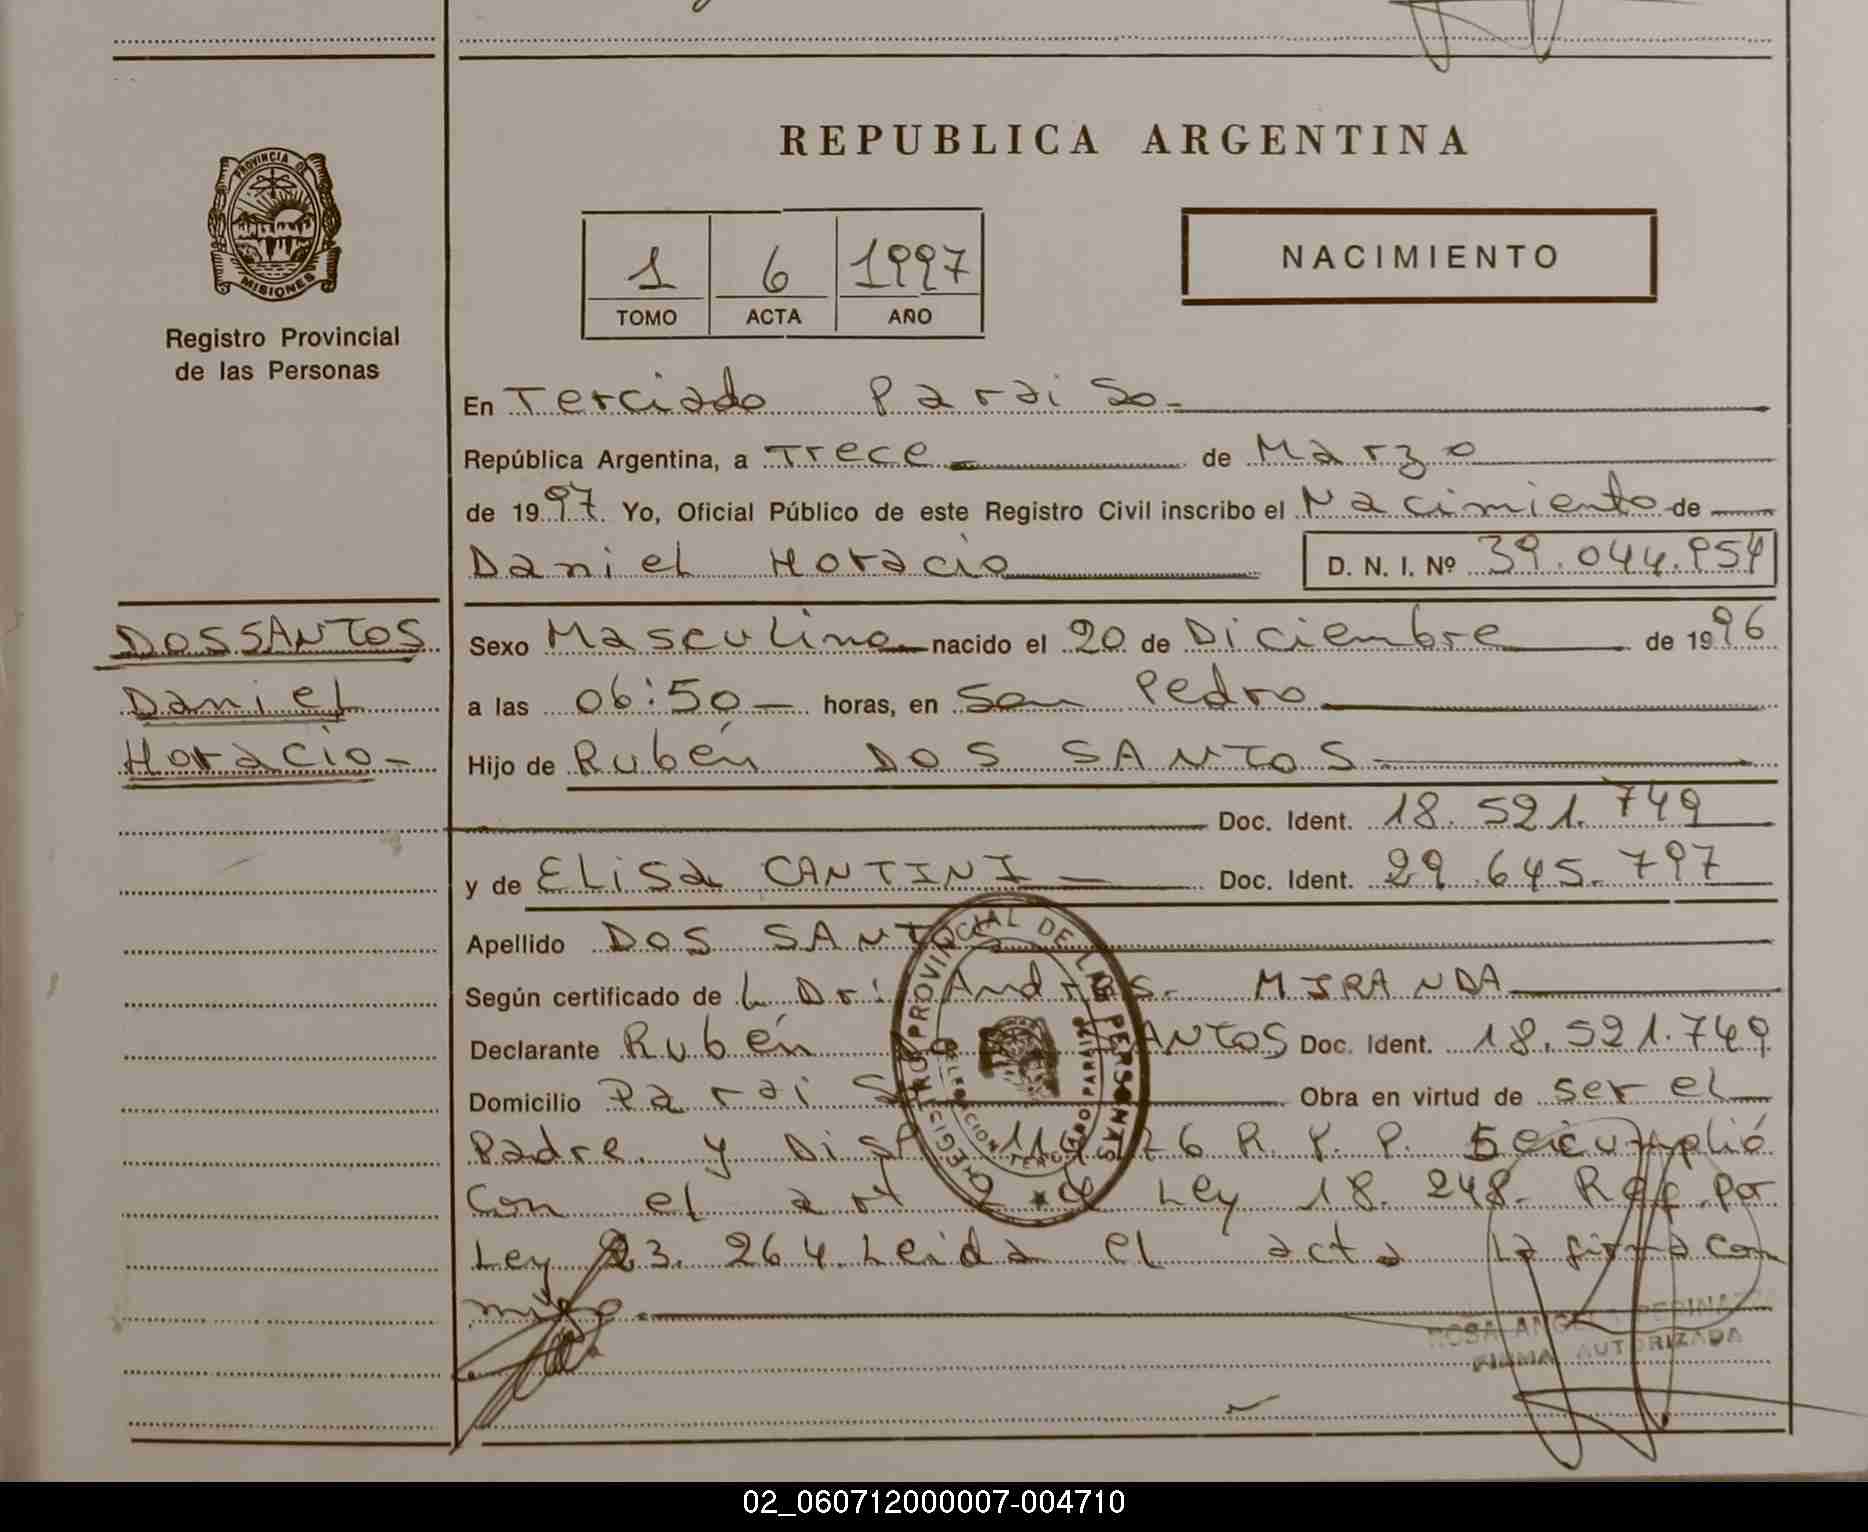 REPUBLICA ARGENTINA
PROVINCIA DE
MISIONES
Registro Provincial
de las Personas
1 6 1997
TOMO ACTA AÑO
NACIMIENTO
En Terciado Paraiso.
República Argentina, a Trece de Marzo
de 1997 Yo, Oficial Público de este Registro Civil inscribo el Nacimiento de
Daniel Horacio D. N. I. Nº 39.044.954
DOS SANTOS
Daniel
Horacio-
Sexo Masculino nacido el 20 de Diciembre de 1996
a las 06:50 horas, en San Pedro
Hijo de Rubén DOS SANTOS
Doc. Ident. 18.521.749
y de Elisa CANTINI Doc. Ident. 29.645.797
Apellido DOS SANTOS
Según certificado de L Dr: Andrés. MIRANDA
Declarante Rubén SANTOS Doc. Ident. 18.521.749
Domicilio Parai Obra en virtud de ser el
Padre y Disp 76 R.P.P. Se cumplió
Con el art 2 de Ley 18.248. Ref por
Ley 23.264 Leida el acta la firma con
migo.
REGISTRO PROVINCIAL DE LAS PERSONAS
DELEGACION TERCIADO PARAIZO
ROSA ANGELA
FIRMA AUTORIZADA
02_060712000007-004710